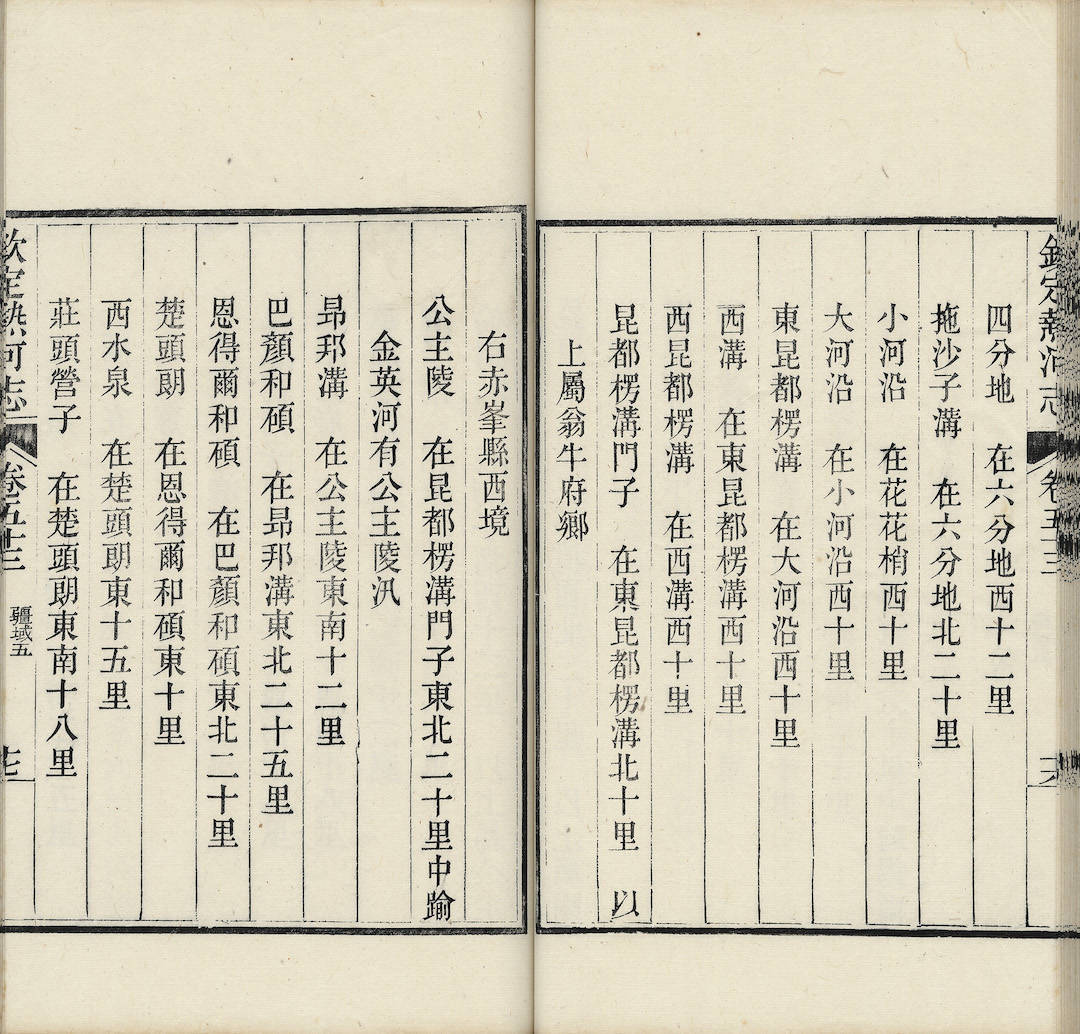 欽定熱河志
卷五十三
四分地　在六分地西十二里
拖沙子溝　在六分地北二十里
小河沿　在花花梢西十里
大河沿　在小河沿西十里
東昆都楞溝　在大河沿西十里
西溝　在東昆都楞溝西十里
西昆都楞溝　在西溝西十里
昆都楞溝門子　在東昆都楞溝北十里　以
上屬翁牛府鄉
右赤峯縣西境
公主陵　在昆都楞溝門子東北二十里中踰
金英河有公主陵汛
昂邦溝　在公主陵東南十二里
巴顏和碩　在昂邦溝東北二十五里
恩得爾和碩　在巴顏和碩東北二十里
楚頭朗　在恩得爾和碩東十里
西水泉　在楚頭朗東十五里
莊頭營子　在楚頭朗東南十八里
欽定熱河志
卷五十三
疆域五